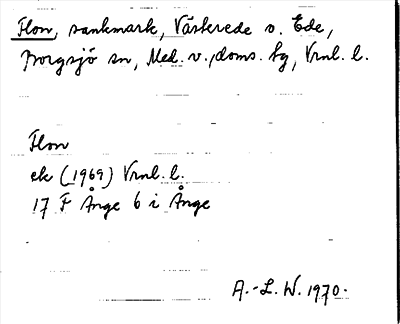 Flon, sankmark, Västerede o. Ede,
Borgsjö sn, Med. v., doms. hg, Vrnl. l.
Flon
ek (1969) Vrnl. l.
17 F Ånge 6 i Ånge
A.-L. W. 1970.